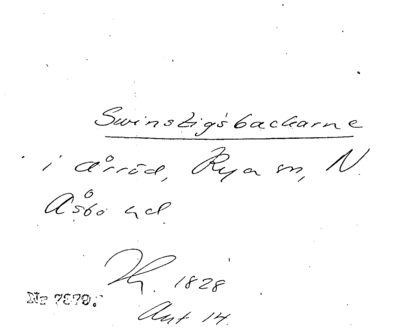 Swinstigsbackarne
i Årröd, Rya sn, N.
Åsbo hd
Hg. 1828
Akt 14
Nr 7879.